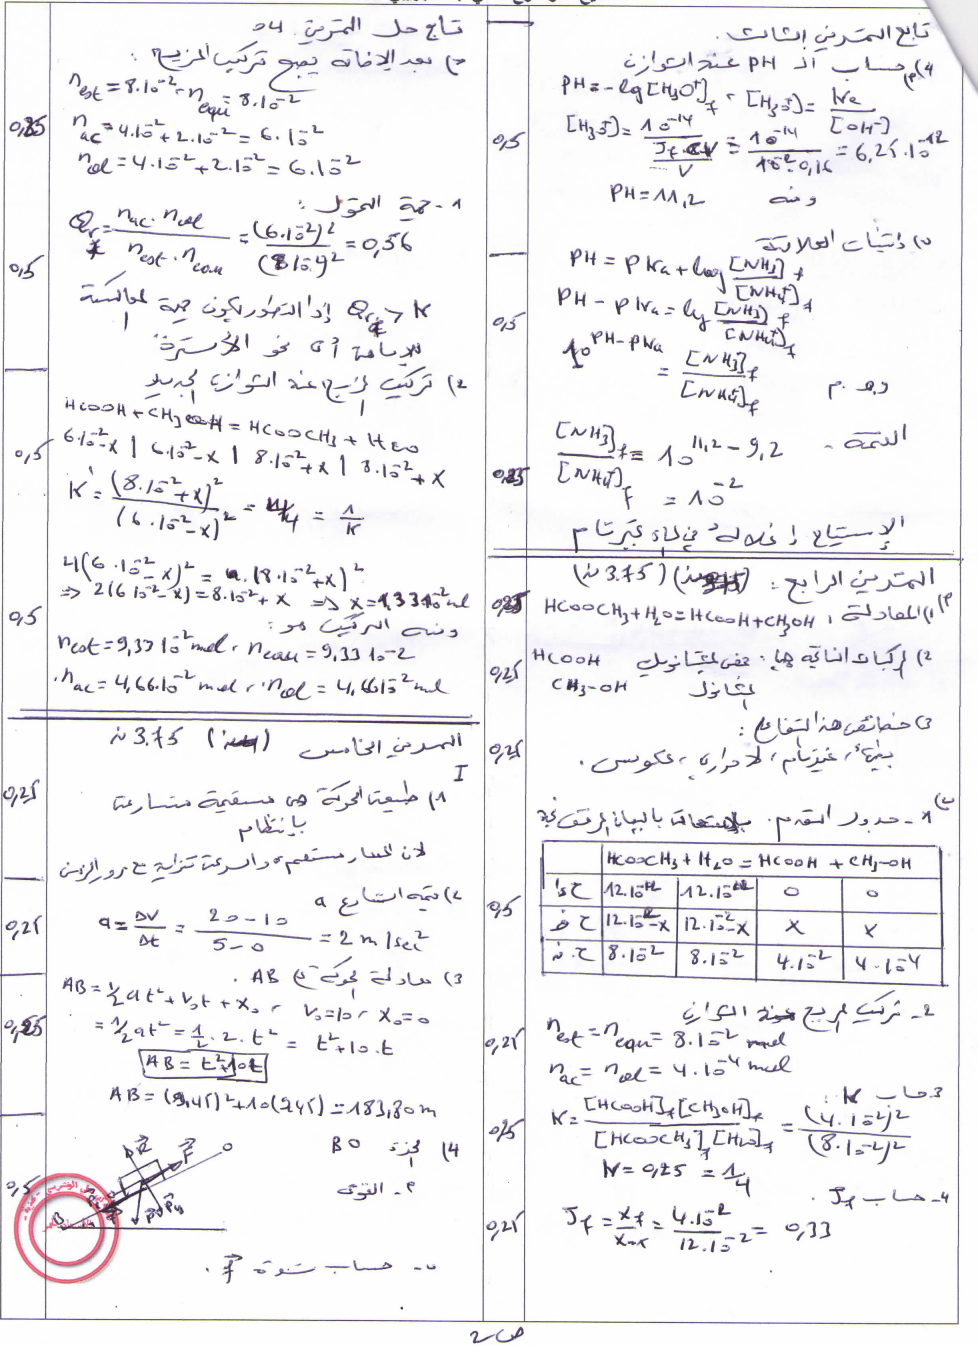 تابع التمرين الثالث.
4) P) حساب الـ PH عند التوازن
PH = -log[H3O+]f , [H3O+] = Ke / [OH-]
[H3O+] = 10^-14 / (Jf.CV / V) = 10^-14 / (10^-2 . 0,16) = 6,25.10^-12
ومنه PH = 11,2
0,5
ب) إثبات العلاقة
PH = PKa + log [NH3]f / [NH4+]f
PH - PKa = log [NH3]f / [NH4+]f
10^(PH-PKa) = [NH3]f / [NH4+]f
و هـ . م
0,5
القيمة - [NH3]f / [NH4+]f = 10^(11,2-9,2)
= 10^-2
0,25
غير تام
التمرين الرابع: (3.75 ن)
P) 1) المعادلة: HCOOCH3 + H2O = HCOOH + CH3OH
0,25
2) المركبات الناتجة هي: حمض الميثانويك HCOOH
ميثانول CH3-OH
0,25
3) خصائص هذا التفاعل:
بطيء، غير تام، لا حراري، عكوس.
0,25
ب) 1- جدول التقدم.
HCOOCH3 + H2O = HCOOH + CH3-OH
ح.ا 12.10^-2 12.10^-2 0 0
ح.و 12.10^-2-x 12.10^-2-x x x
ح.ن 8.10^-2 8.10^-2 4.10^-2 4.10^-4
0,5
2- تركيب المزيج عند التوازن
nest = nequ = 8.10^-2 mol
nac = nol = 4.10^-4 mol
0,25
3. حساب K:
K = [HCOOH]f [CH3OH]f / [HCOOCH3]f [H2O]f = (4.10^-2)^2 / (8.10^-2)^2
K = 0,25 = 1/4
0,25
4- حساب Jf.
Jf = xf / xmax = 4.10^-2 / 12.10^-2 = 0,33
0,25
تابع حل التمرين 04
ج) بعد الإضافة يصبح تركيب المزيج:
nest = 8.10^-2 , nequ = 8.10^-2
nac = 4.10^-2 + 2.10^-2 = 6.10^-2
nol = 4.10^-2 + 2.10^-2 = 6.10^-2
0,25
1- جهة التحول:
Qri = nac . nol / nest . neau = (6.10^-2)^2 / (8.10^-2)^2 = 0,56
0,5
Qri > K إذا التطور يكون جهة المعاكسة
للإماهة أي نحو الأسترة.
2) تركيب المزيج عند التوازن الجديد
HCOOH + CH3OH = HCOOCH3 + H2O
6.10^-2-x | 6.10^-2-x | 8.10^-2+x | 8.10^-2+x
0,5
K' = (8.10^-2+x)^2 / (6.10^-2-x)^2 = 4 = 1/K
4(6.10^-2-x)^2 = (8.10^-2+x)^2
=> 2(6.10^-2-x) = 8.10^-2+x => x = 1,33.10^-2 mol
ومنه التركيب هو:
0,5
nest = 9,33.10^-2 mol , neau = 9,33.10^-2
nac = 4,66.10^-2 mol , nol = 4,66.10^-2 mol
التمرين الخامس (3.75 ن)
I
1) طبيعة الحركة هي مستقيمة متسارعة
بانتظام
0,25
لأن المسار مستقيم، والسرعة متزايدة مع مرور الزمن
2) قيمة التسارع a
a = ΔV / Δt = (20-10) / (5-0) = 2 m/sec^2
0,25
3) معادلة الحركة في AB.
AB = 1/2 at^2 + V0t + x0 , V0 = 10 , x0 = 0
= 1/2 at^2 = 1/2 . 2 . t^2 = t^2 + 10.t
AB = t^2+10t
0,25
AB = (9,45)^2 + 10(9,45) = 183,80 m
4) الجزء BO
P- القوى
0,5
ب- حساب شدة f.
ص2